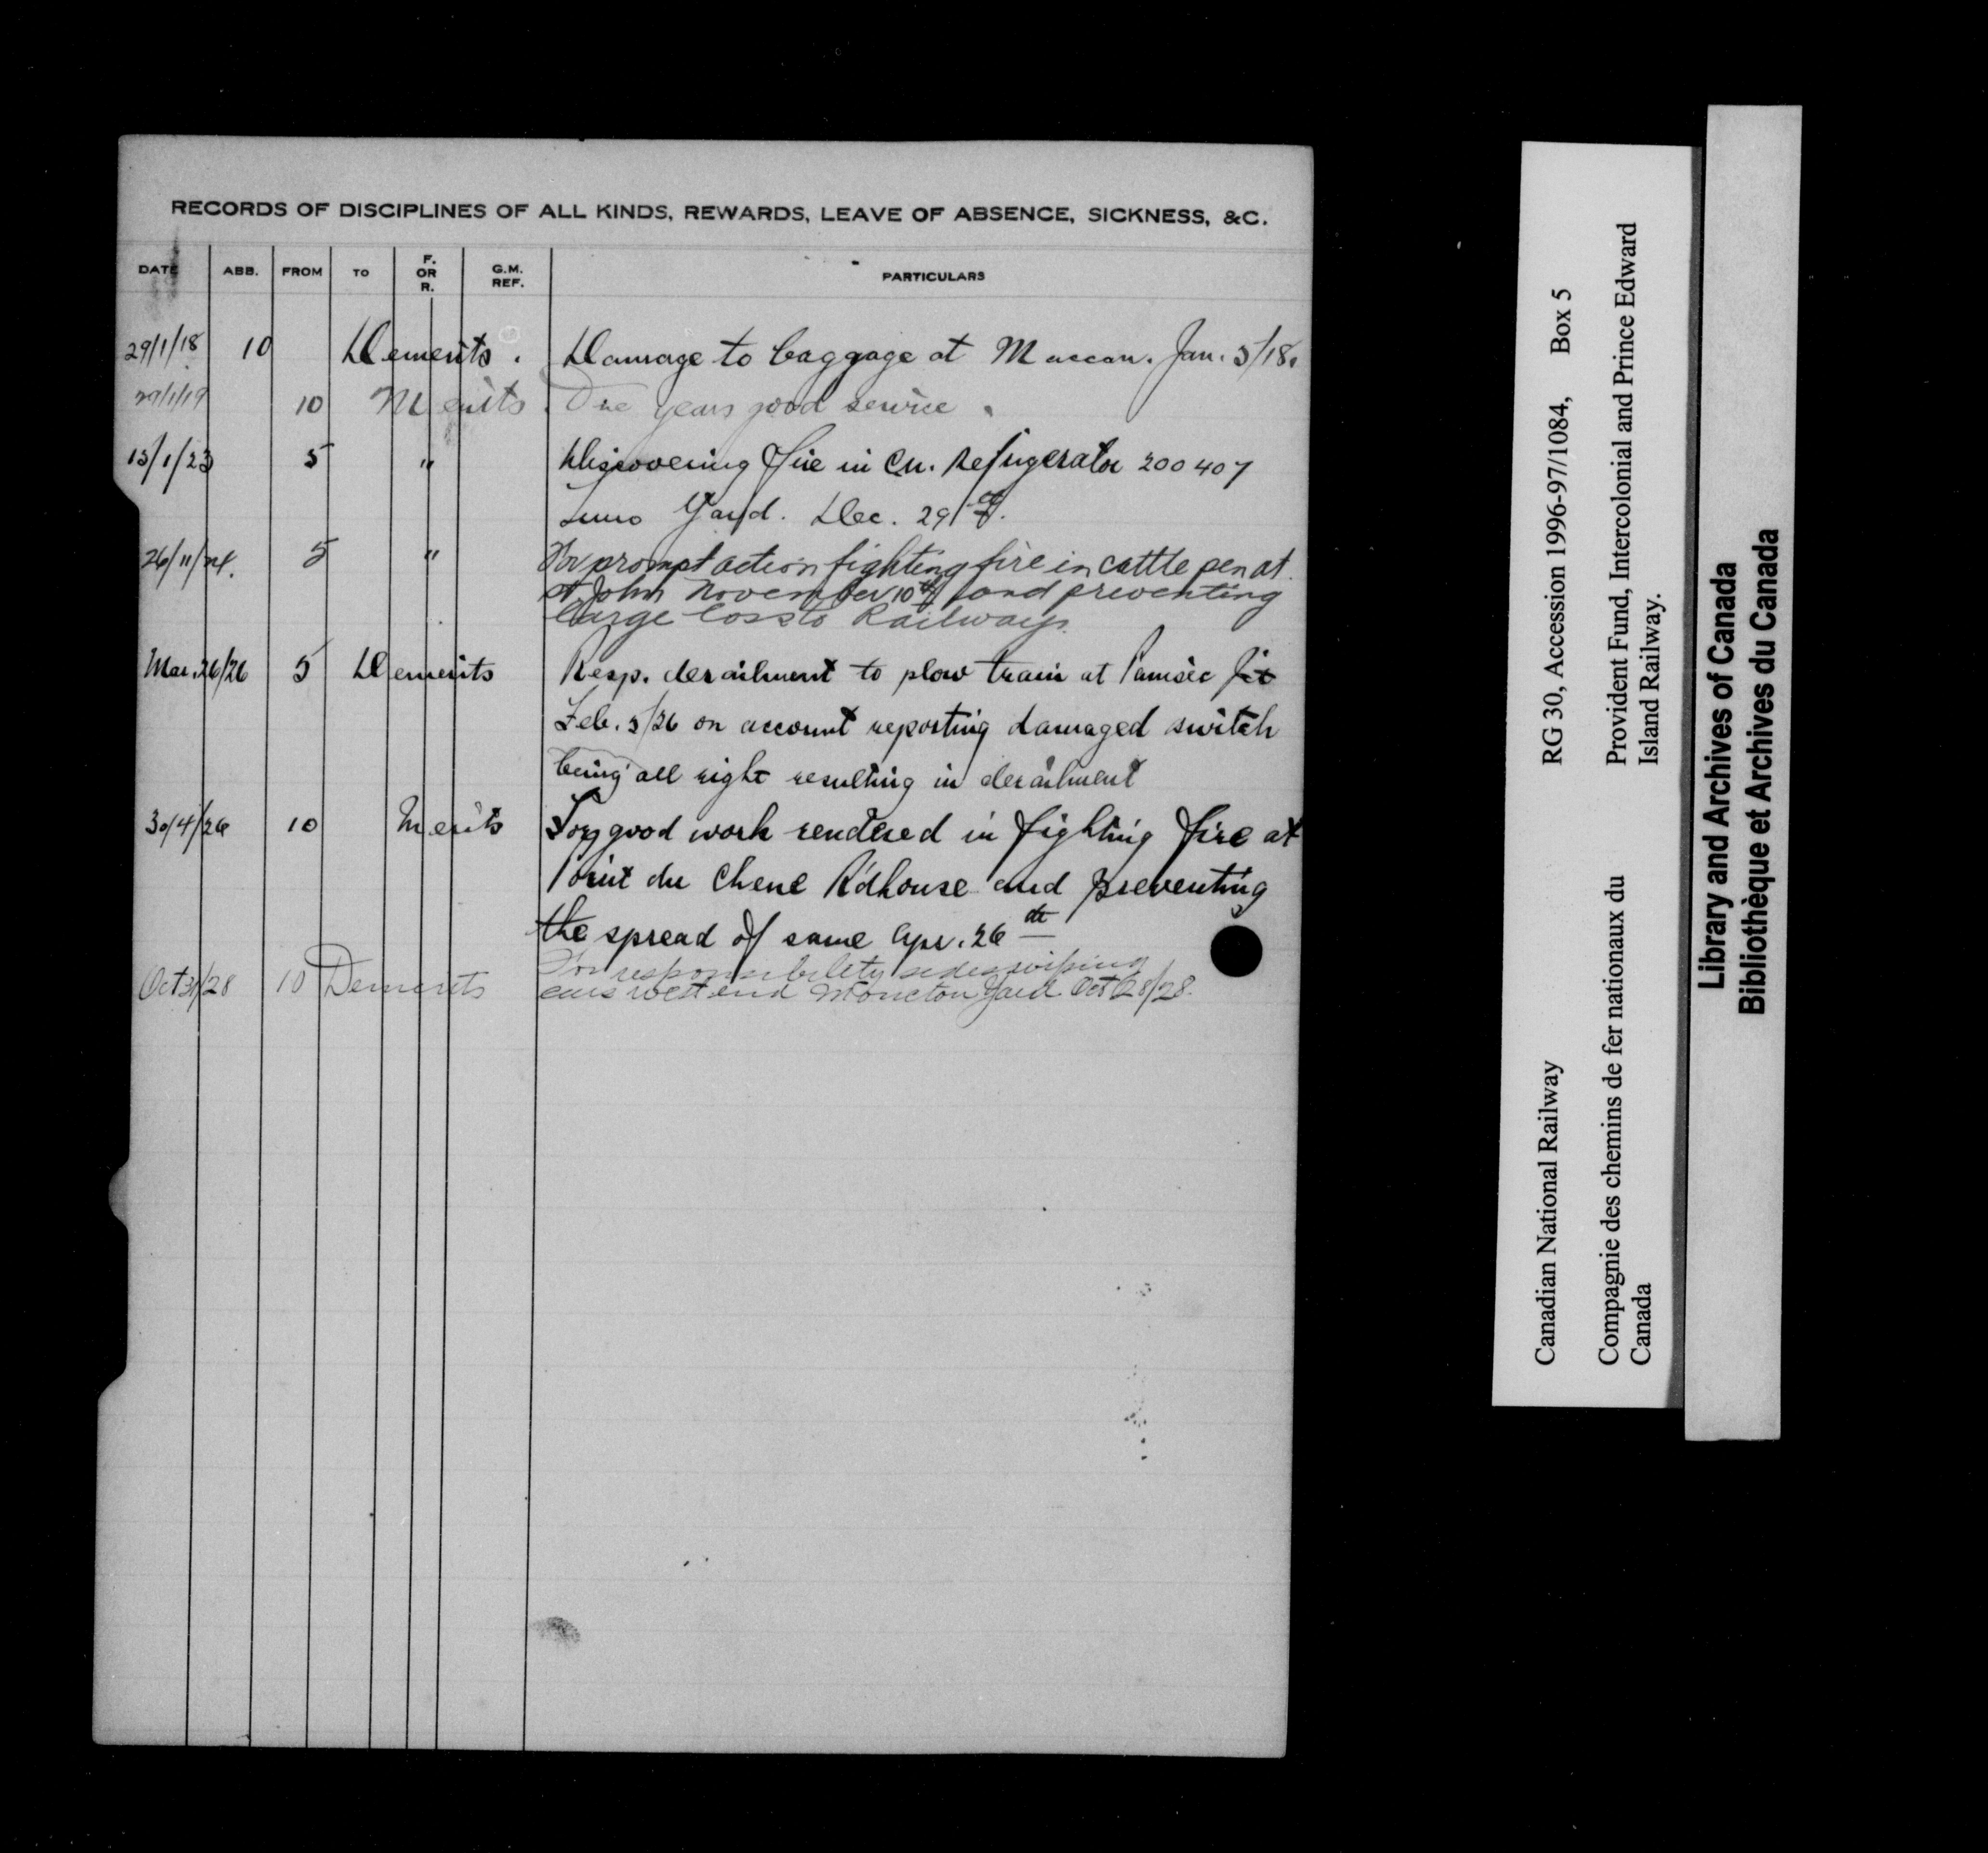 RECORDS OF DISCIPLINES OF ALL KINDS, REWARDS, LEAVE OF ABSENCE, SICKNESS, &C.
DATE ABB. FROM TO F. OR R. G.M. REF. PARTICULARS
29/1/18 10 Demerits. Damage to baggage at Maccan. Jan. 5/18.
29/1/19 10 Merits. One years good service.
13/1/23 5 " Discovering fire in Cn. Refrigerator 200407
Truro Yard. Dec. 29th.
26/11/24. 5 " For prompt action fighting fire in cattle pen at
St. John November 10th and preventing
large loss to Railways.
Mar. 26/26 5 Demerits Resp. derailment to plow train at Painsec Jct
Feb. 5/26 on account reporting damaged switch
being all right resulting in derailment
30/4/26 10 Merits For good work rendered in fighting fire at
Point du Chene R'dhouse and preventing
the spread of same Apr. 26th
Oct 31/28 10 Demerits For responsibility sideswiping
cars west end Moncton Yard Oct 28/28.
Canadian National Railway RG 30, Accession 1996-97/1084, Box 5
Compagnie des chemins de fer nationaux du Provident Fund, Intercolonial and Prince Edward
Canada Island Railway.
Library and Archives of Canada
Bibliothèque et Archives du Canada